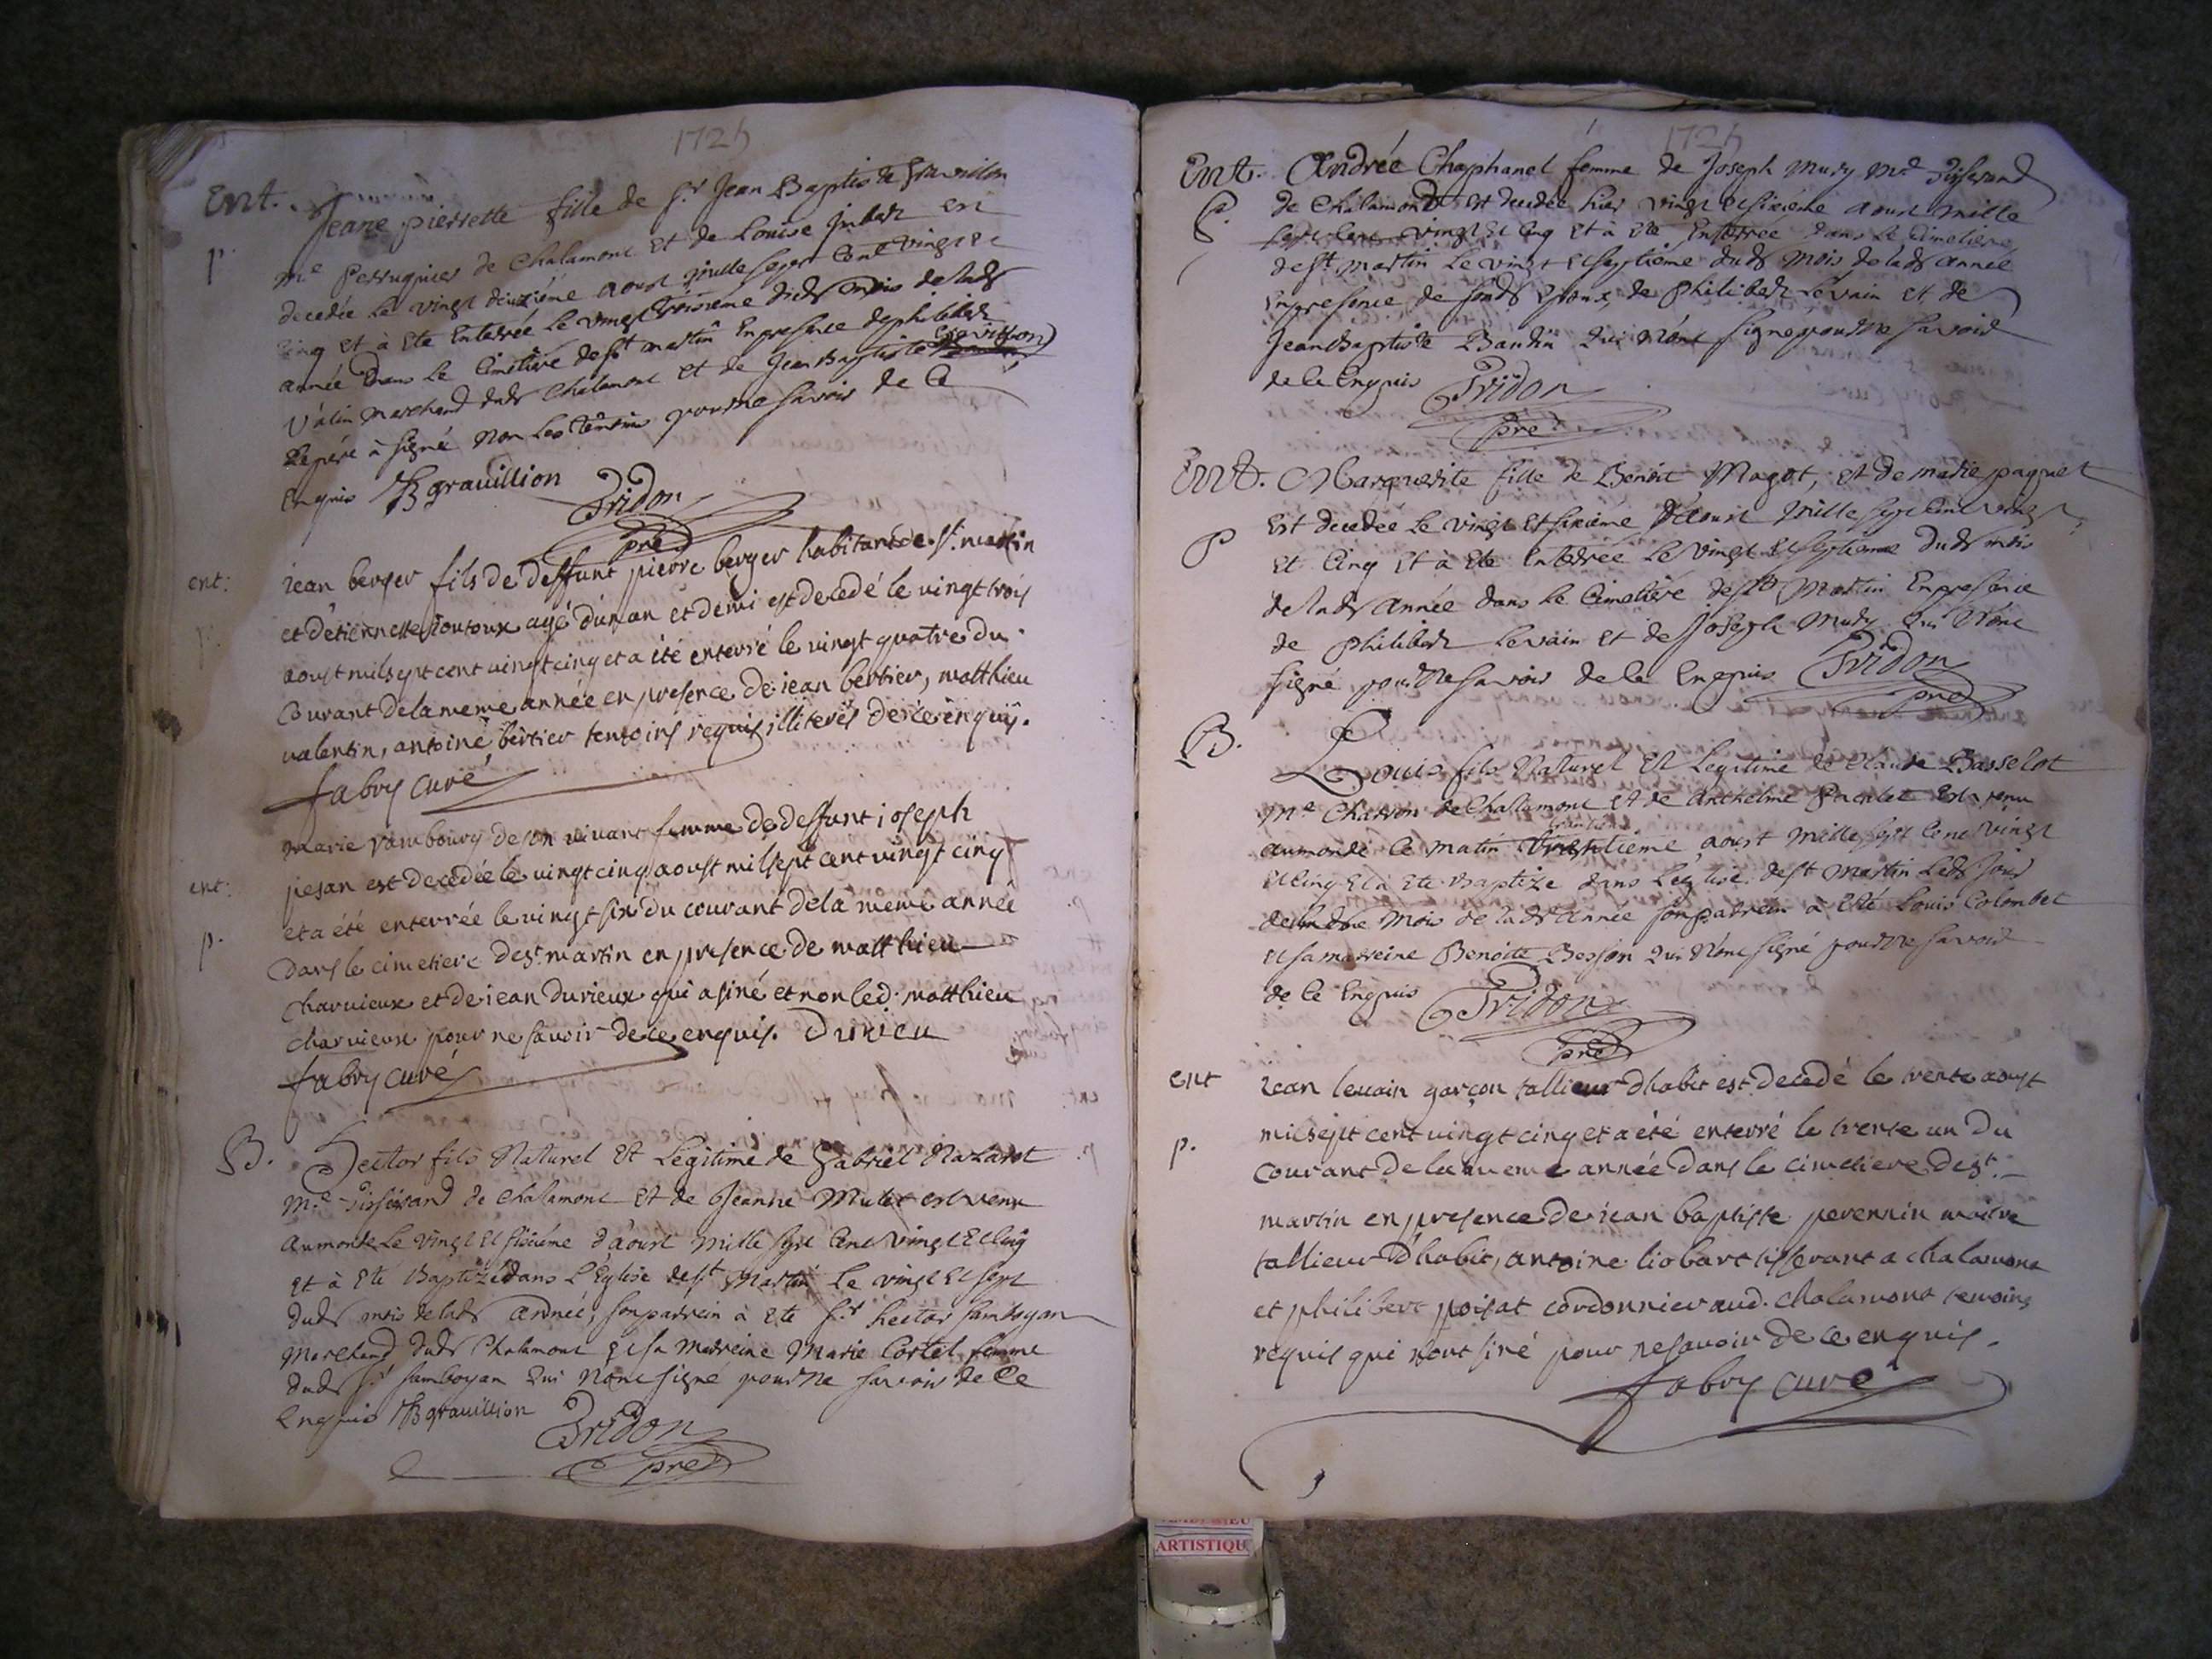 1725
Ent. Jeane pierrette fille de Sr Jean Baptiste Gravilion
p. Me Perruquier de Chalamont et de Louise Jmbert est
decedée le vingt deuxième aoust mille sept cent vingt et
cinq et à eté enterrée le vingt troisième dudt mois de ladt
année dans le Cimetière de st martin en presence de philibert
valin marchand dudt Chalamont et de Jean Baptiste
le père à signé non les témoins pour ne savoir de ce
enquis JB grauillion Pridon
pre
ent: iean berger fils de deffunt pierre berger habitant de st. martin
et d'etiennette Joutoux agé d'un an et demi est decedé le vingt trois
p. aoust mil sept cent vingt cinq et a été enterré le vingt quatre du
Courant de la meme année en presence de iean bertier, matthieu
valentin, antoine bertier temoins requis illiterés de ce enquis.
fabry curé
marie rambourg de son vivant femme de deffunt ioseph
ent: pesan est decedée le vingt cinq aoust mil sept cent vingt cinq
et a été enterrée le vingt six du courant de la meme année
p. dans le cimetiere de st. martin en presence de matthieu
charvieux et de iean durieux qui a siné et non led. matthieu
charvieux pour ne savoir de ce enquis. Durieu
fabry curé
B. Hector fils Naturel et Legitime de Gabriel Nazarot
Me Tisserand de Chalamont et de Jeanne Mulet est venu
au monde le vingt et sixième d'aoust mille sept cent vingt et cinq
et à eté Baptizé dans l'Eglise de st Martin le vingt et sept
dudt mois de ladt année, son parrein à eté Sr hector samboyan
Marchand dudt Chalamont et sa marreine Marie Cortel femme
dudt Sr samboyan qui n'ont signé pour ne savoir de ce
enquis JB grauillion Pridon
pre
1725
Ent. Andrée Chaphanel femme de Joseph Mury Me Tisserand
P. de Chalamont est decedée hier vingt et sixième aoust mille
sept cent vingt et cinq et à eté enterrée dans le Cimetière
de st martin le vingt et septième dudt mois de ladt année
en presence de sondt epoux, de Philibert Levain et de
Jean Baptiste Baudin qui n'ont signé pour ne savoir
de ce enquis Pridon
pre
Ent. Marguerite fille de Benoit Magot, et de marie paquet
est decedée le vingt et sixième d'aoust mille sept cent vingt
P et cinq et à eté enterrée le vingt et septieme dudt mois
de ladt année dans le Cimetière de st Martin en presence
de Philibert Levain et de Joseph Mury qui n'ont
signé pour ne savoir de ce enquis Pridon
pre
B. Louis fils Naturel et Legitime de Claude Basselot
Me Charron de Chalamont et de Anthelme est venu
au monde ce matin trentième aoust mille sept cent vingt
et cinq et à eté Baptizé dans l'eglise de st Martin ledt jour
dudt mois de ladt année son parrein à eté Louis Colombet
et sa marreine Benoitte Besson qui n'ont signé pour ne savoir
de ce enquis Pridon
pre
ent iean levain garçon tallieur d'habit est decedé le trente aoust
mil sept cent vingt cinq et a été enterré le trente un du
p. courant de la meme année dans le cimetiere de st.
martin en presence de iean baptiste perennin maitre
tallieur d'habit, antoine liobart tisserant a chalamont
et philibert poisat cordonnier aud. chalamont temoins
requis qui n'ont siné pour ne savoir de ce enquis.
fabry curé
ARTISTIQU